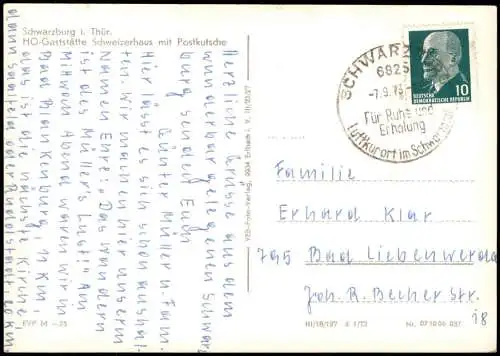 Schwarzburg i. Thür.
HO-Gaststätte Schweizerhaus mit Postkutsche
Herzliche Grüsse aus dem
wunderbar gelegenen Schwarz
burg senden Euch
Günter Müller u. Fam.
Hier lässt es sich schon aushal-
ten. Wir machen hier unserm
Namen Ehre: „Das Wandern
ist des Müller's Lust!" Am
Mittwoch Abend waren wir in
Bad Blankenburg, 11 km,
das ist die nächste Kirche
dann Saalfeld oder Rudolstadt, 20 km
EVP M -,25
VEB-Foto-Verlag, 9934 Erlbach i. V.
SCHWARZ
6825
-7.9.73
Für Ruhe und
Erholung
Luftkurort im Schwarzatal
DEUTSCHE
DEMOKRATISCHE REPUBLIK
10
Familie
Erhard Klar
795 Bad Liebenwerda
Joh. R. Becher Str.
18
III/18/197 A 1/73 Nr. 07 10 06 037